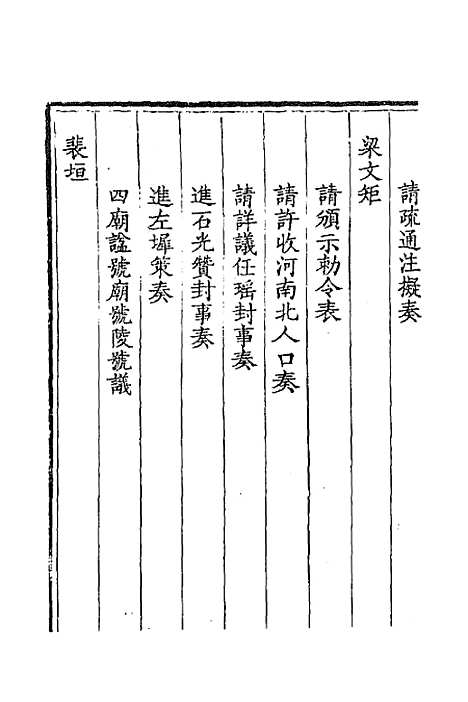 請疏通注擬奏
梁文矩
請頒示勅令表
請許收河南北人口奏
請詳議任瑶封事奏
進石光贊封事奏
進左墀策奏
四廟諡號廟號陵號議
裴垣